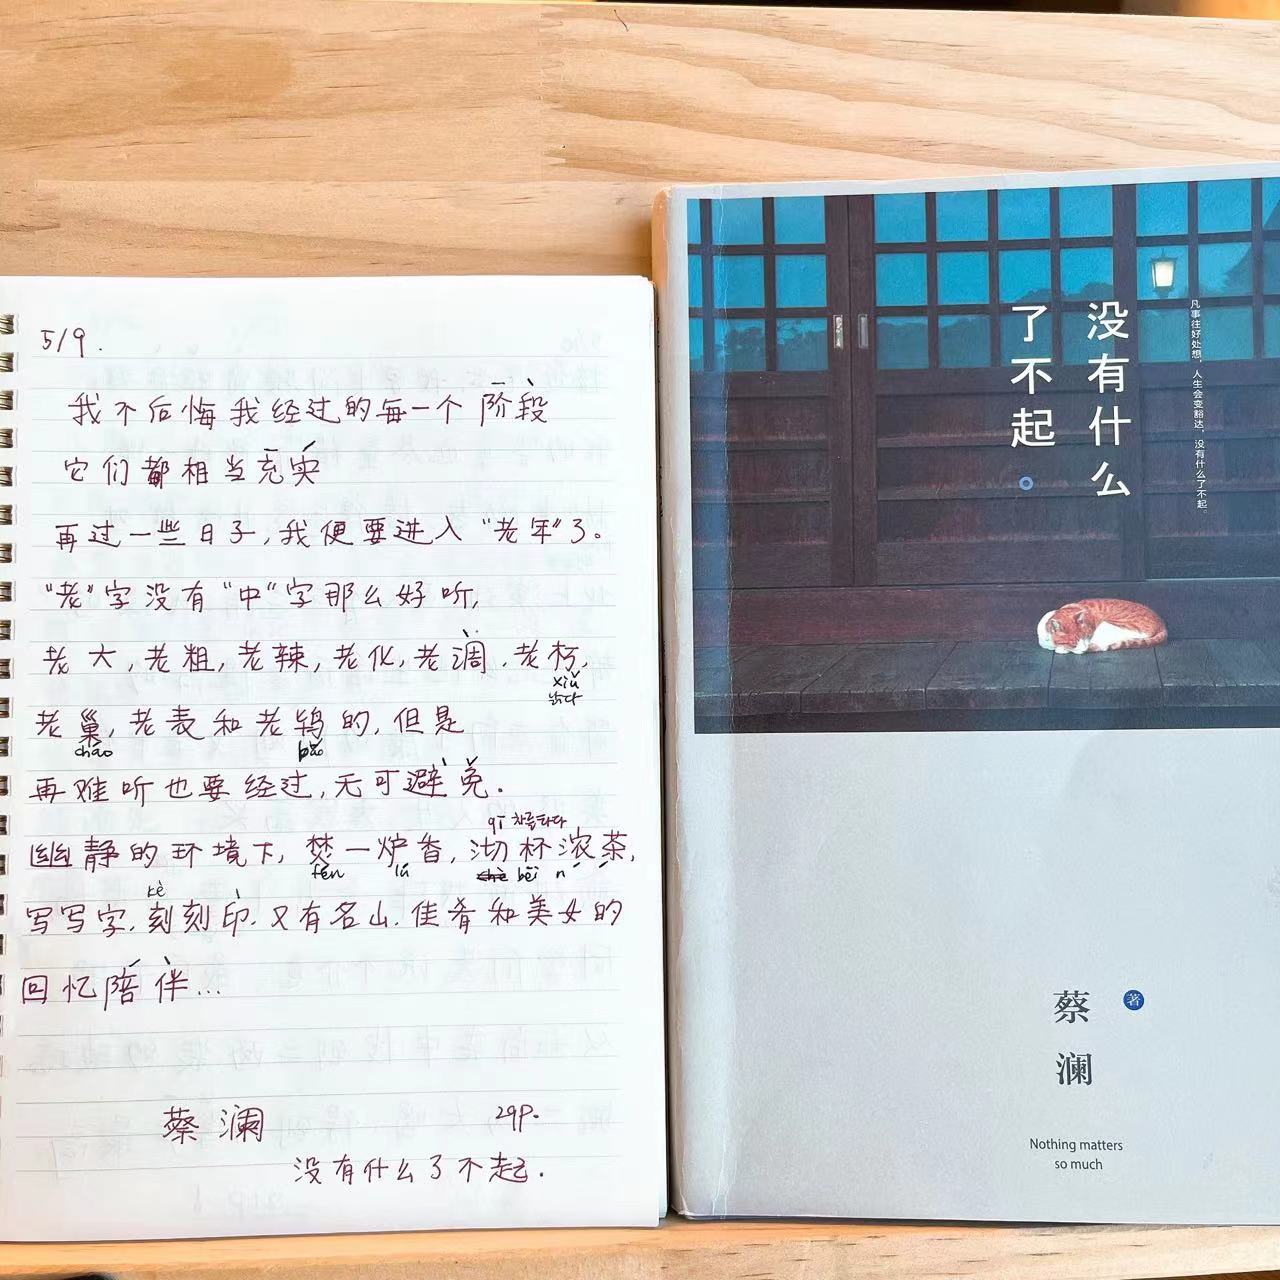 5/9.
我不后悔我经过的每一个阶段
它们都相当充实
再过一些日子,我便要进入“老年”了。
“老”字没有“中”字那么好听,
老大,老粗,老辣,老化,老凋,老朽,
xiǔ
老巢,老表和老鸨的,但是
cháo bǎo
再难听也要经过,无可避免.
qī 차를타다
幽静的环境下,焚一炉香,沏杯浓茶,
fén lú bēi n
kè
写写字,刻刻印.又有名山.佳肴和美女的
回忆陪伴...
蔡澜 29p.
没有什么了不起.
没有什么
了不起。
凡事往好处想,人生会变豁达,没有什么了不起。
蔡澜
著
Nothing matters
so much